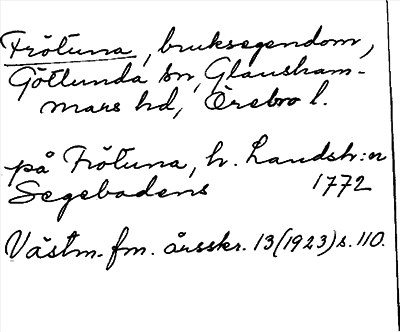 Frötuna, bruksegendom,
Götlunda sn, Glansham-
mars hd, Örebro l.
på Frötuna, h. Landsh:n
Segebadens 1772
Västm. fm. årsskr. 13 (1923) s. 110.